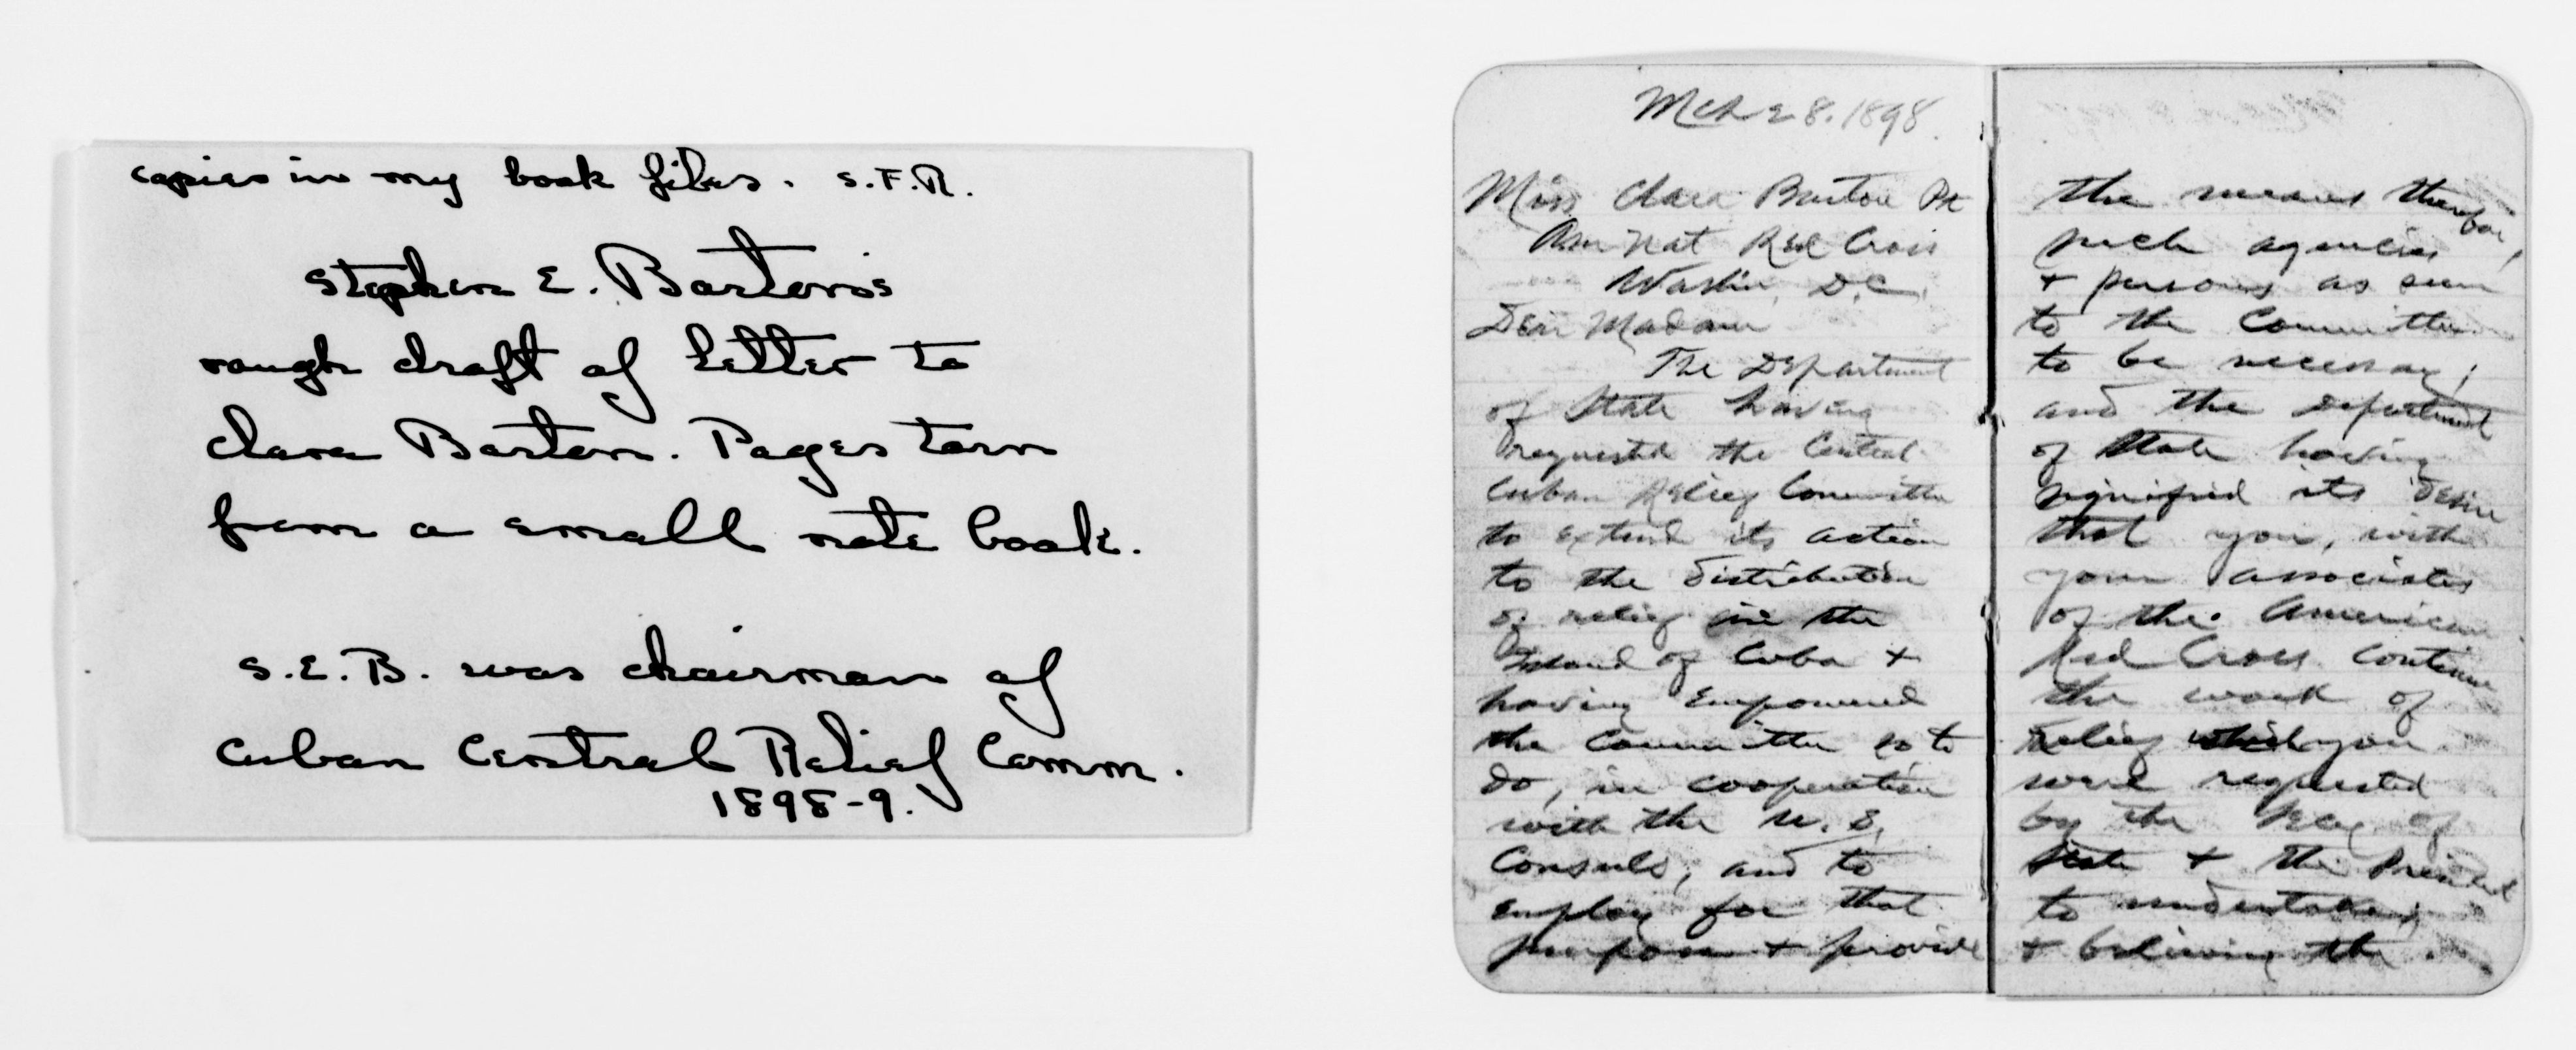 copies in my book files. S.F.R.
Stephen E. Barton's
rough draft of letter to
Clara Barton. Pages torn
from a small note book.
S.E.B. was chairman of
Cuban Central Relief Comm.
1898-9.
Mch 28. 1898.
Miss Clara Barton Pt
Am Nat Red Cross
Washn, D.C.
Dear Madam
The Department
of State having
requested the Central
Cuban Relief Committee
to extend its action
to the distribution
of relief in the
Island of Cuba +
having empowered
the Committee so to
do, in cooperation
with the U. S.
Consuls, and to
employ for that
purpose + provide
the means therefor,
such agencies,
+ persons as seem
to the Committee
to be necessary;
and the Department
of State having
signified its desire
that you, with
your associates
of the American
Red Cross continue
the work of
relief which you
were requested
by the Secy of
State + the President
to undertake;
+ believing the